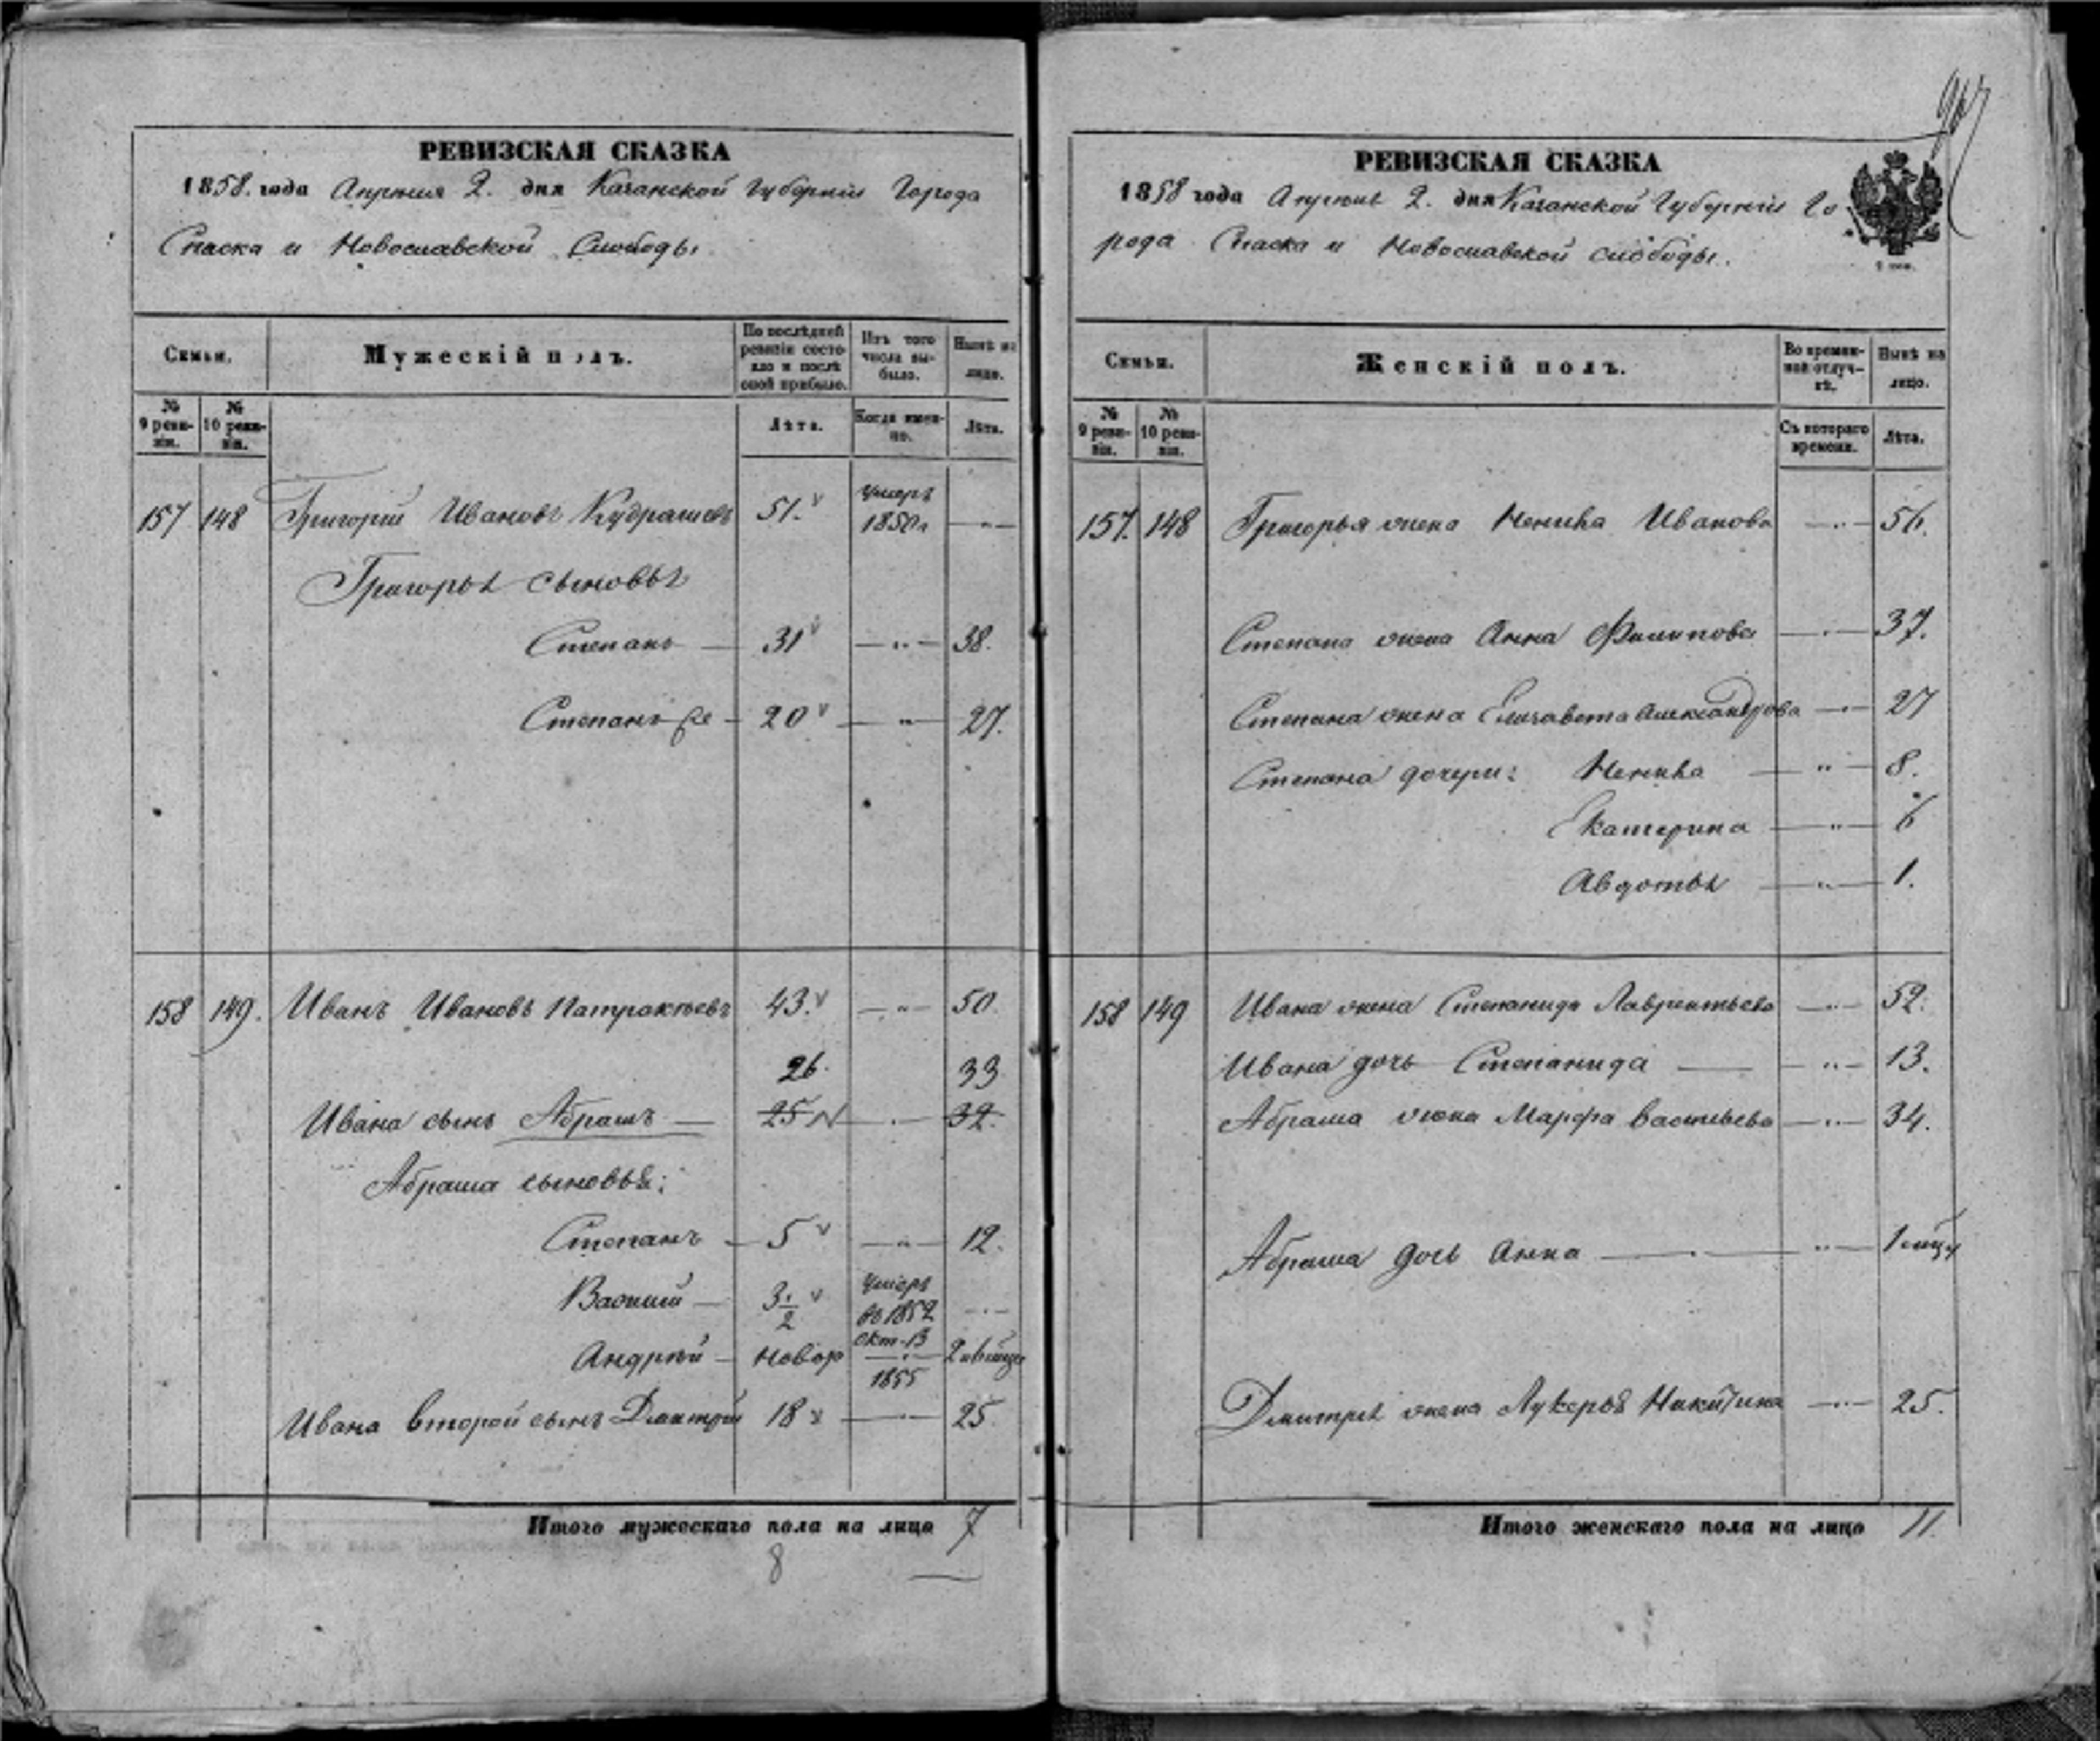 РЕВИЗСКАЯ СКАЗКА
1858. года Апреля 2. дня Казанской Губернии Города
Спаска и Новоспавской Слободы
Семьи.
Мужескій полъ.
По послѣдней ревизіи состояло и послѣ оной прибыло.
Изъ того числа выбыло.
Нынѣ на лицо.
№ 9 ревизіи.
№ 10 ревизіи.
Лѣта.
Когда именно.
Лѣта.
157 148 Григорій Ивановъ Кудрашевъ 51. Умеръ 1850 —„—
Григорья сыновья
Степанъ — 31 —„— 38.
Степанъ — 20 —„— 27.
158 149. Иванъ Ивановъ Патракѣевъ 43. —„— 50.
26. 33
Ивана сынъ Абрамъ — 25 —„— 32.
Абрама сыновья:
Степанъ — 5 —„— 12.
Василій — 3 1/2 Умеръ въ 1852 —„—
Андрѣй — новор окт. 13 1855
Ивана второй сынъ Дмитрій 18 —„— 25.
Итого мужескаго пола на лицо 7
8
РЕВИЗСКАЯ СКАЗКА
1858 года Апреля 2. дня Казанской Губерніи Го
рода Спаска и Новоспавской слободы.
Семьи.
Женскій полъ.
Во временной отлучкѣ.
Нынѣ на лицо.
№ 9 ревизіи.
№ 10 ревизіи.
Съ котораго времени.
Лѣта.
157. 148 Григорья жена Ненила Иванова —„— 56.
Степана жена Анна Филипова —„— 37.
Степана жена Елизавета Александрова —„— 27
Степана дочери: Ненила —„— 8.
Екатерина —„— 6
Авдотья —„— 1.
158 149 Ивана жена Степанида Лаврентьева —„— 52.
Ивана дочь Степанида —„— 13.
Абрама жена Марфа Васильева —„— 34.
Абрама дочь Анна —„— 1
Дмитрія жена Лукерья Никитина —„— 25.
Итого женскаго пола на лицо 11.